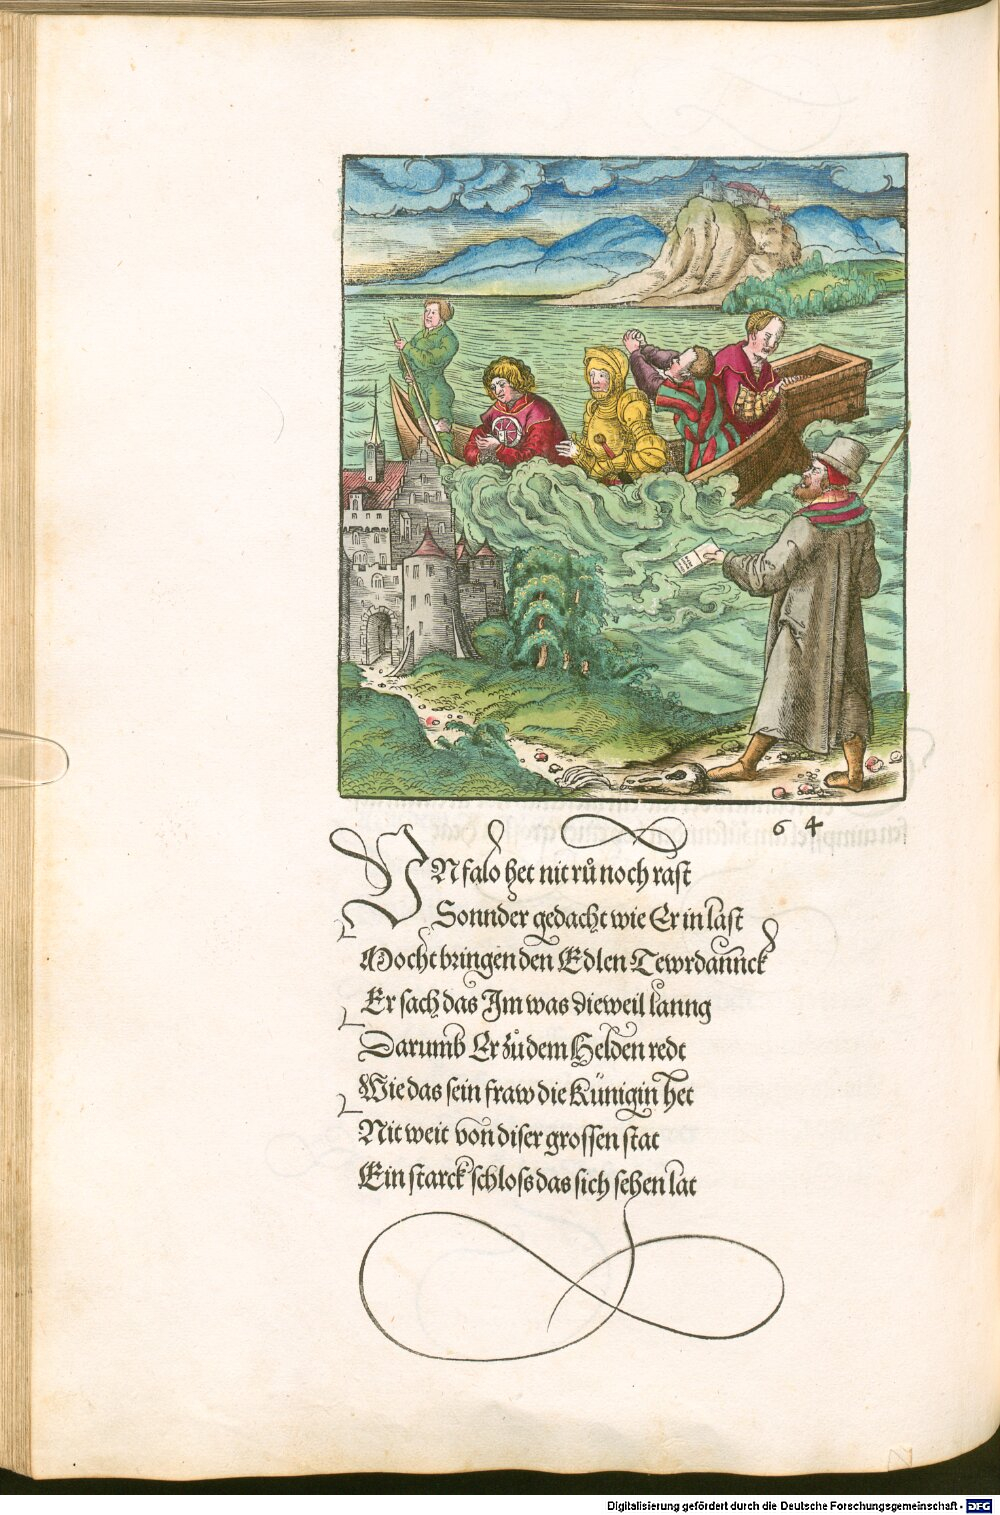 64
VNfalo het nit rů noch rast
Sonnder gedacht wie Er in last
Mocht bringen den Edlen Tewrdannck
Er sach das Im was die weil lanng
Darumb Er zů dem Helden redt
Wie das sein fraw die Künigin het
Nit weit von diser grossen stat
Ein starck schloss das sich sehen lat
Digitalisierung gefördert durch die Deutsche Forschungsgemeinschaft - DFG